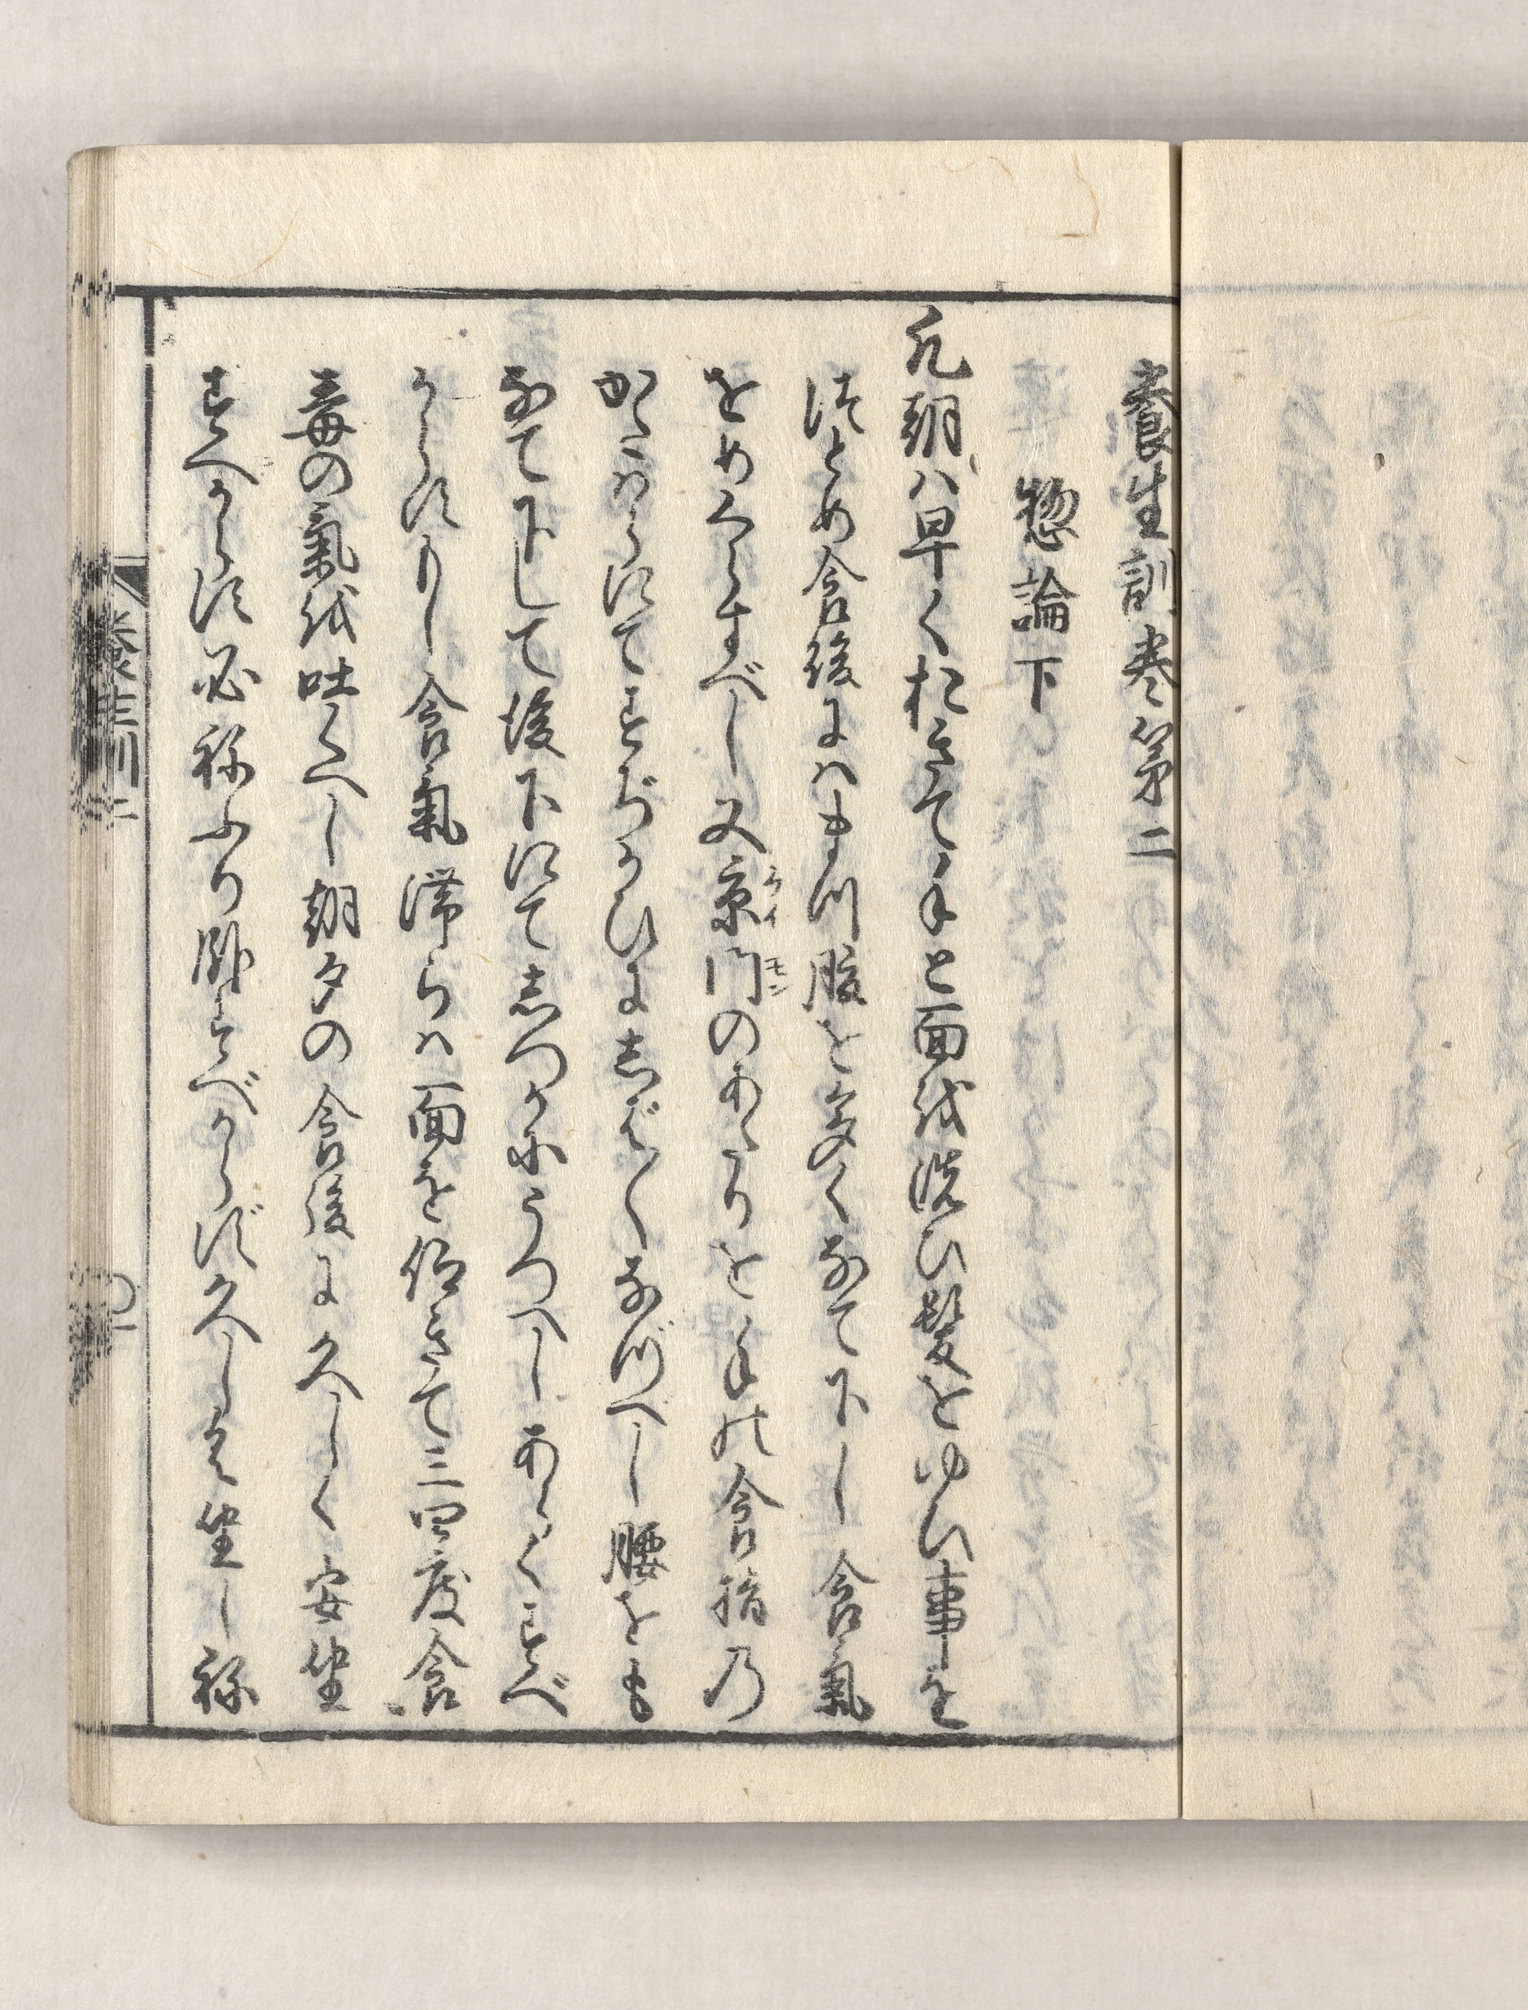 養生訓巻第二
惣論下
凡朝ハ早くおきて手と面を洗ひ髪をゆひ事を
つとめ食後にハまづ腹を多くなて下し食氣
をめくらすべし又京門のあたりを手の食指の
かたハらにてすぢかひにしば〱なづべし腰をも
なて下して後下にてしつかにうつへしあらくすべ
からすもし食氣滞らハ面を仰きて三四度食
毒の氣を吐くへし朝夕の食後に久しく安坐
すへからす必ねふり臥すべからず久しく坐しね
ケイモン
養生訓二